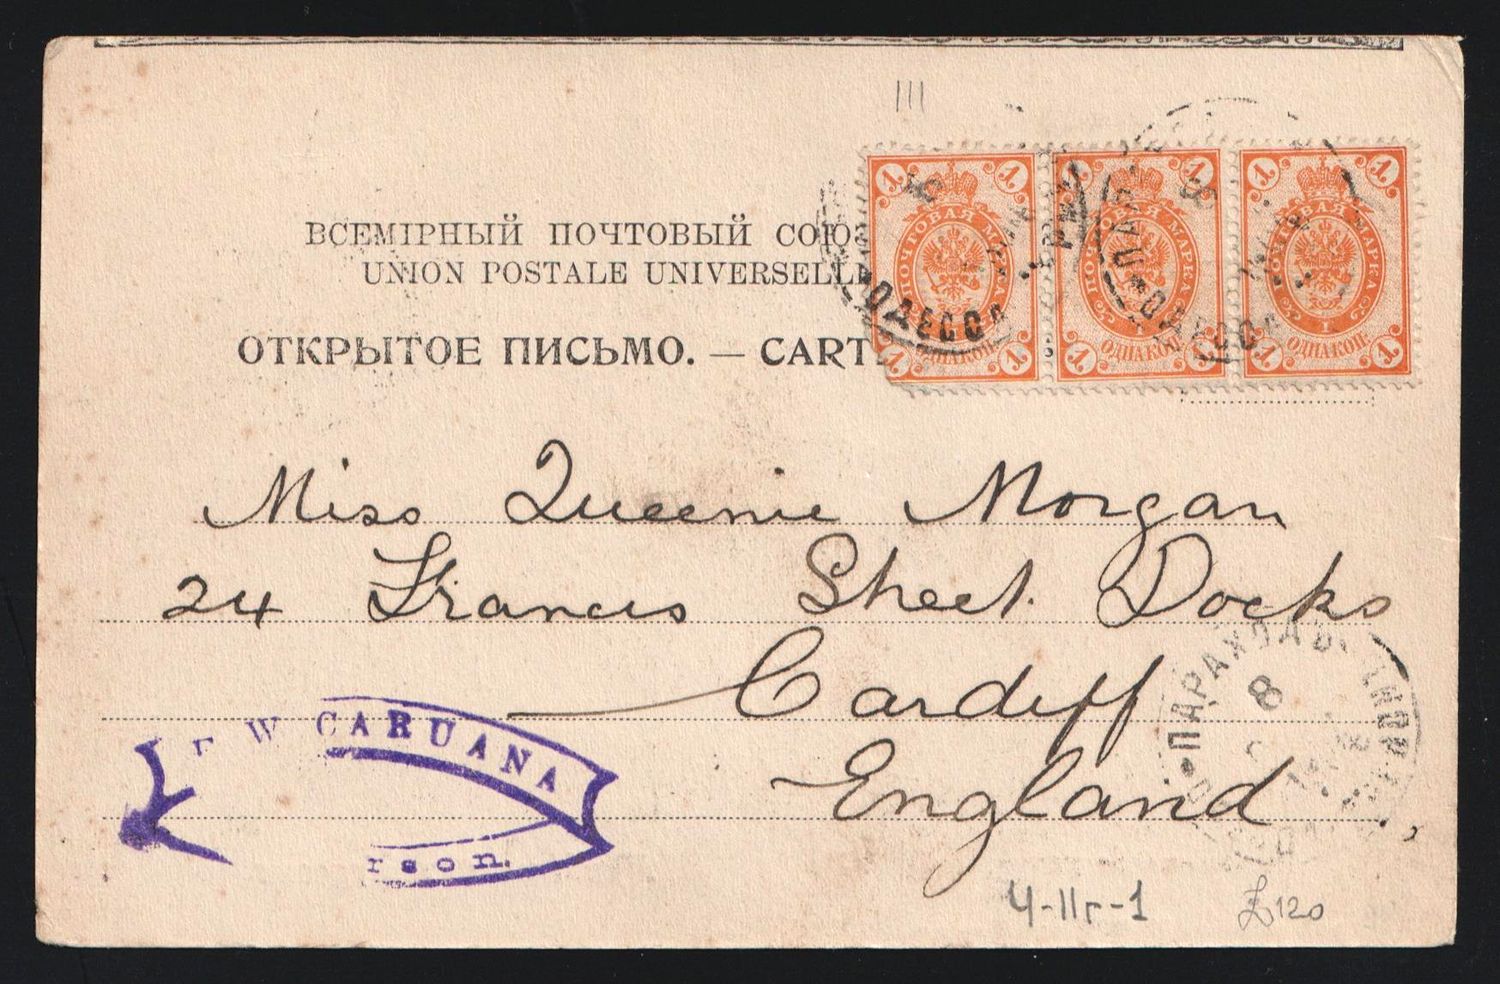 ВСЕМІРНЫЙ ПОЧТОВЫЙ СОЮ
UNION POSTALE UNIVERSELL
ОТКРЫТОЕ ПИСЬМО. — CART
1 1 1 1 1 1
ПОЧТОВАЯ МАРКА ПОЧТОВАЯ МАРКА ПОЧТОВАЯ МАРКА
ОДНА КОП. ОДНА КОП.
1 1 1 1 1
ОДЕССА ОДЕССА
Miss Queenie Morgan
24 Francis Street. Docks
Cardiff
England
W CARUANA
rson.
ПАРАХОДЪ
8
Ч-IIг-1
£120